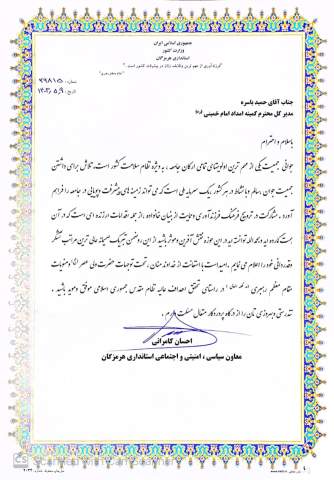 جمهوری اسلامی ایران
وزارت کشور
استانداری هرمزگان
"فرزندآوری از مهم ترین وظایف زنان در پیشرفت کشور است."
"مقام معظم رهبری"
شماره: ۳۹۸۱۵
۱۴۰۳، ۵، ۹
جناب آقای حمید یاسره
مدیر کل محترم کمیته امداد امام خمینی (ره)
باسلام و احترام
جوانی جمعیت یکی از مهم ترین اولویتهای تمامی ارکان جامعه، به ویژه نظام سلامت کشور است. تلاش برای داشتن
جمعیت جوان، سالم و بانشاط در هر کشور یک سرمایه ملی است که می تواند زمینه های پیشرفت و پویایی در جامعه را فراهم
آورد. مشارکت در ترویج فرهنگ فرزندآوری و حمایت از بنیان خانواده از جمله اقدامات ارزنده ای است که در آن
همت گمارده اید و بحمدالله توانسته اید در این حوزه نقش آفرین و موثر باشید. از این رو ضمن تبریک صمیمانه عالی ترین مراتب تشکر
و قدردانی خود را اعلام می نمایم. امید است با استعانت از خداوند منان، تحت توجهات حضرت ولی عصر (عج) و منویات
مقام معظم رهبری (مد ظله العالی) در راستای تحقق اهداف عالیه نظام مقدس جمهوری اسلامی موفق و موید باشید.
تندرستی و بهروزی تان را از درگاه پروردگار متعال مسئلت دارم.
احسان کامرانی
معاون سیاسی، امنیتی و اجتماعی استانداری هرمزگان
CS
Scanned with CamScanner